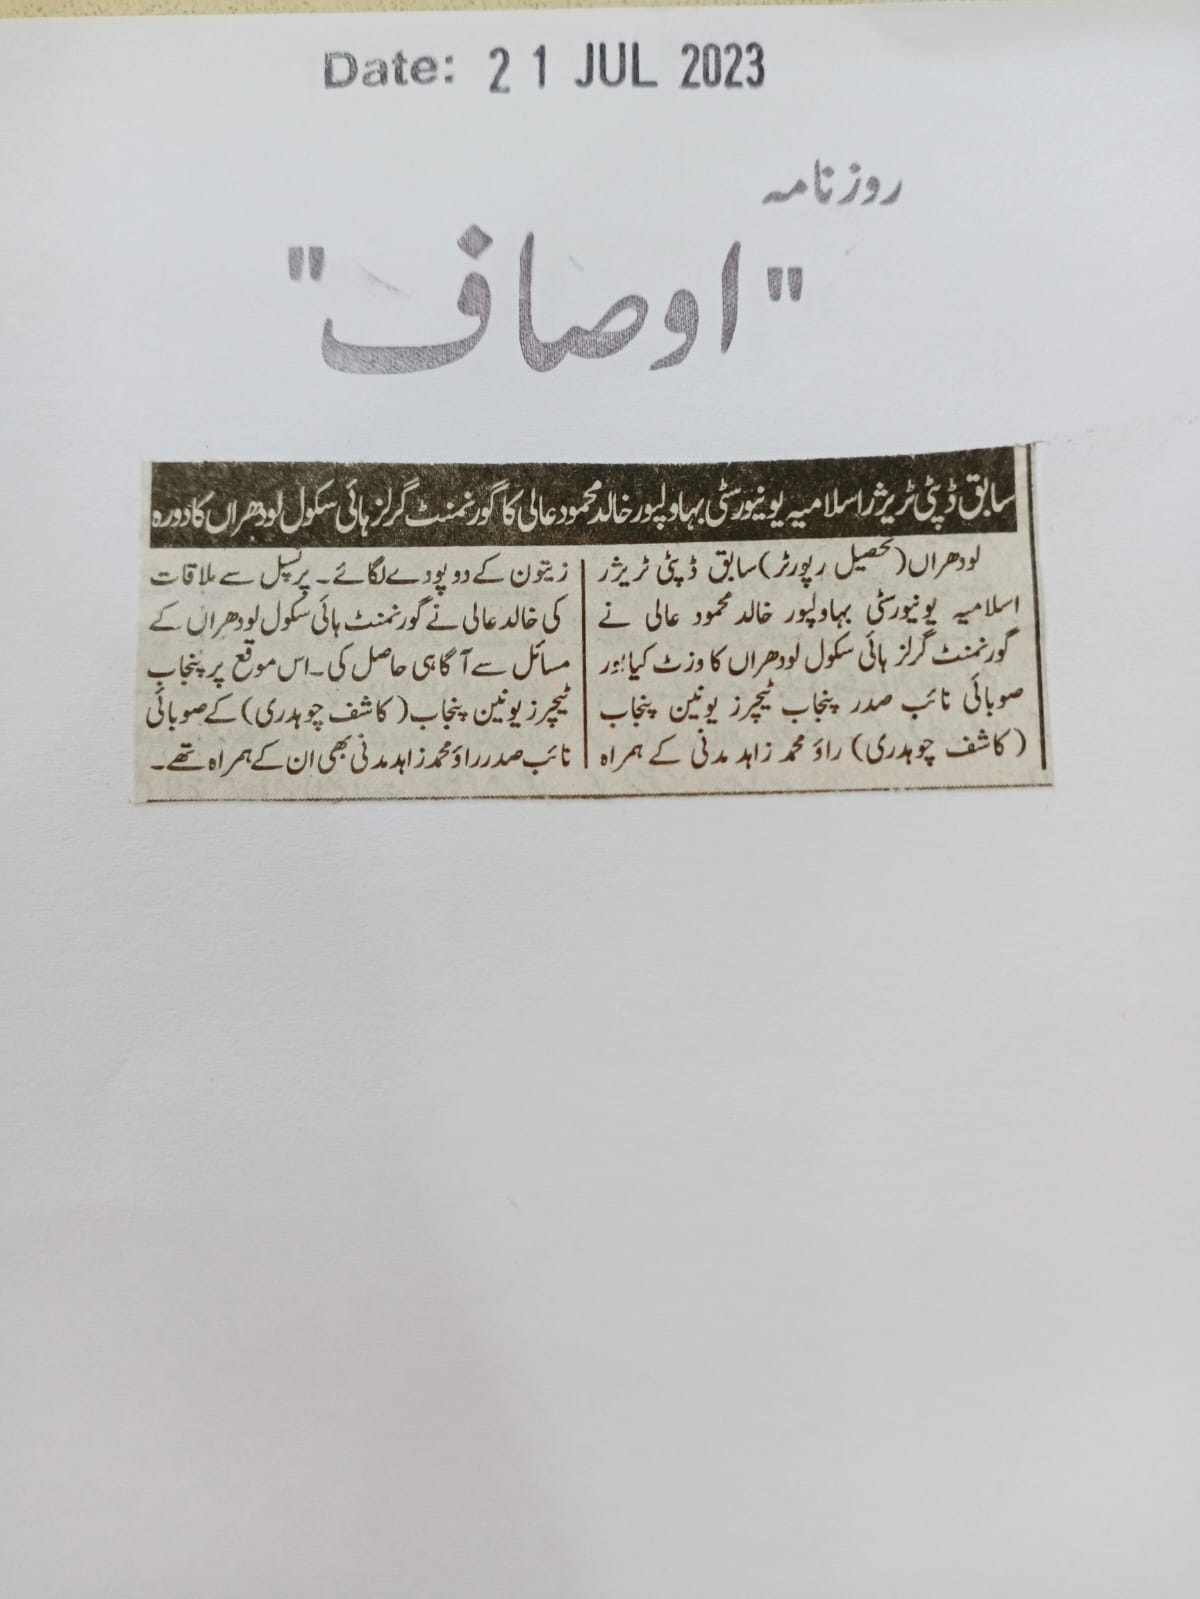 Date: 21 JUL 2023
روزنامہ
"اوصاف"
سابق ڈپٹی ٹریژر اسلامیہ یونیورسٹی بہاولپور خالد محمود عالی کا گورنمنٹ گرلز ہائی سکول لودھراں کا دورہ
لودھراں (تحصیل رپورٹر) سابق ڈپٹی ٹریژر
اسلامیہ یونیورسٹی بہاولپور خالد محمود عالی نے
گورنمنٹ گرلز ہائی سکول لودھراں کا وزٹ کیا اور
صوبائی نائب صدر پنجاب ٹیچرز یونین پنجاب
(کاشف چوہدری) راؤ محمد زاہد مدنی کے ہمراہ
زیتون کے دو پودے لگائے۔ پرنسپل سے ملاقات
کی خالد عالی نے گورنمنٹ ہائی سکول لودھراں کے
مسائل سے آگاہی حاصل کی۔ اس موقع پر پنجاب
ٹیچرز یونین پنجاب (کاشف چوہدری) کے صوبائی
نائب صدر راؤ محمد زاہد مدنی بھی ان کے ہمراہ تھے۔